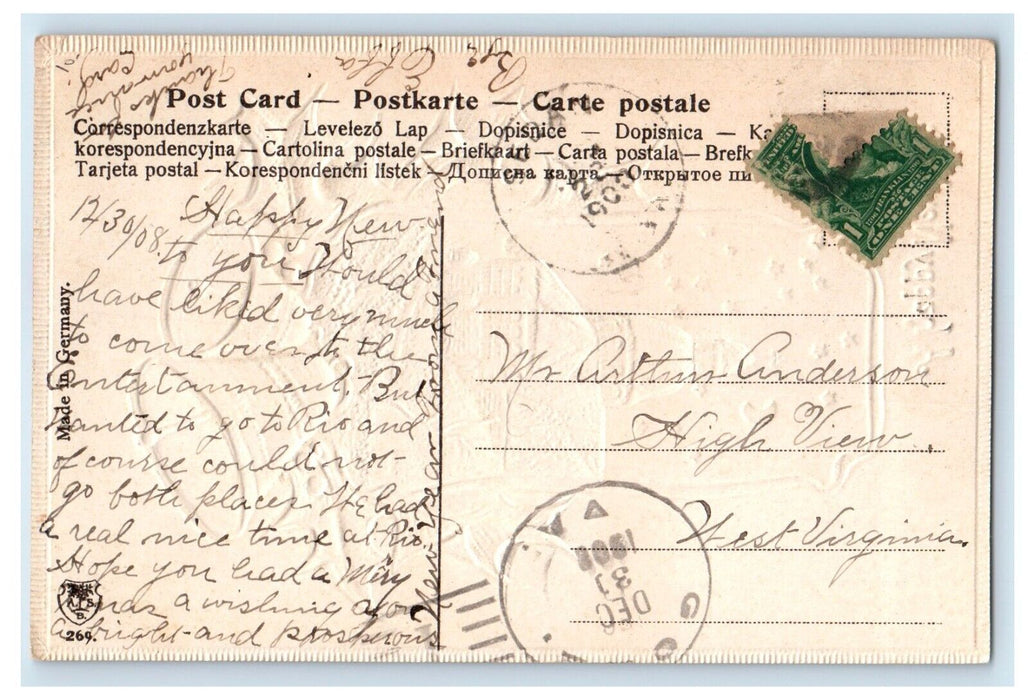 Thanks
your
card.
Bye
Etta
Post Card — Postkarte — Carte postale
Correspondenzkarte — Levelező Lap — Dopisnice — Dopisnica — Ka
korespondencyjna — Cartolina postale — Briefkaart — Carta postala — Brefk
Tarjeta postal — Korespondenční lístek — Дописна карта — Открытое пи
12/30/08.
Happy New
to you Would
have liked very much
to come over to the
Entertainment, But
wanted to go to Rio and
of course could not
go both places. We had
a real nice time at Rio
Hope you had a Merry
Xmas a wishing you
a bright and prosperous
New Year
Made in Germany.
A. S.
B.
269.
Mr Arthur Anderson
High View.
West Virginia.
DEC
31
1908
VA
1